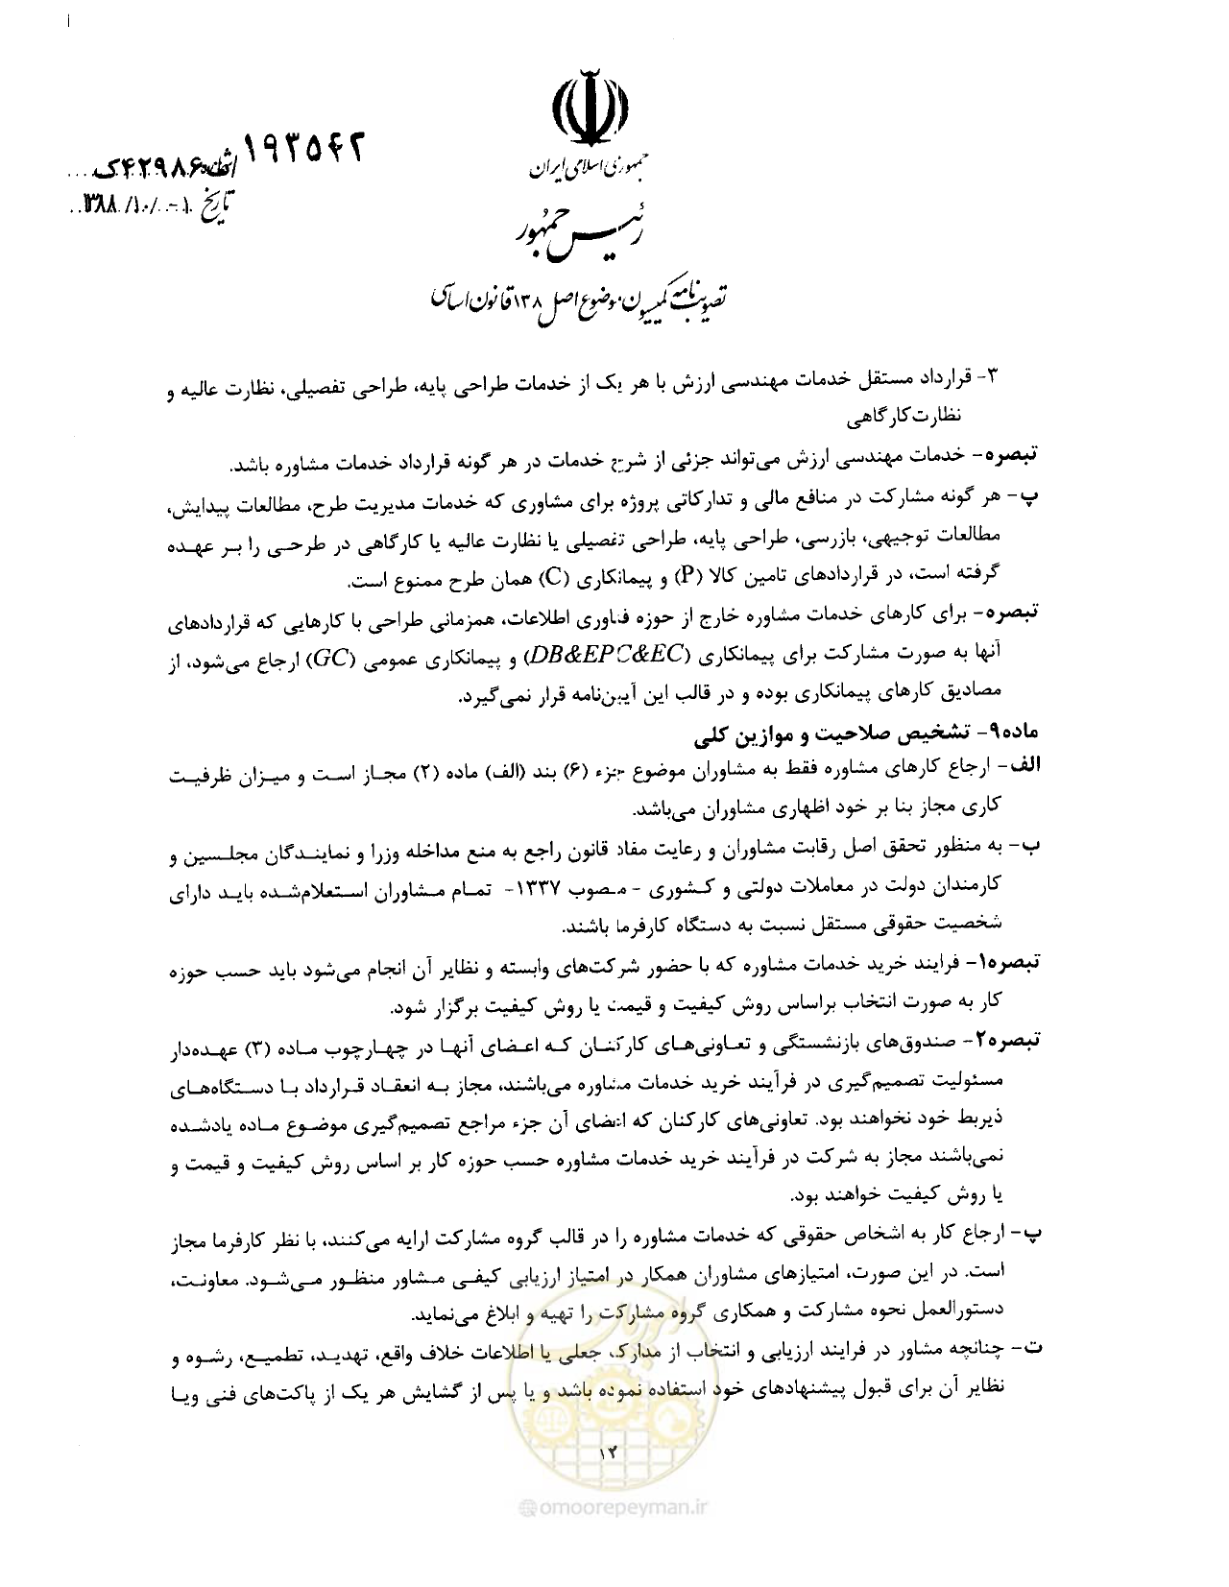 جمهوری اسلامی ایران
رئیس جمهور
تصویب‌نامه کمیسیون موضوع اصل ۱۳۸ قانون اساسی
۱۹۳۵۴۲
۴۲۹۸۶ک
تاریخ ۱۳۸۸/۱۰/۰۱
۳- قرارداد مستقل خدمات مهندسی ارزش با هر یک از خدمات طراحی پایه، طراحی تفصیلی، نظارت عالیه و
نظارت کارگاهی
تبصره- خدمات مهندسی ارزش می‌تواند جزئی از شرح خدمات در هر گونه قرارداد خدمات مشاوره باشد.
پ- هر گونه مشارکت در منافع مالی و تدارکاتی پروژه برای مشاوری که خدمات مدیریت طرح، مطالعات پیدایش،
مطالعات توجیهی، بازرسی، طراحی پایه، طراحی تفصیلی یا نظارت عالیه یا کارگاهی در طرحی را بر عهده
گرفته است، در قراردادهای تامین کالا (P) و پیمانکاری (C) همان طرح ممنوع است.
تبصره- برای کارهای خدمات مشاوره خارج از حوزه فناوری اطلاعات، همزمانی طراحی با کارهایی که قراردادهای
آنها به صورت مشارکت برای پیمانکاری (DB&EPC&EC) و پیمانکاری عمومی (GC) ارجاع می‌شود، از
مصادیق کارهای پیمانکاری بوده و در قالب این آیین‌نامه قرار نمی‌گیرد.
ماده۹- تشخیص صلاحیت و موازین کلی
الف- ارجاع کارهای مشاوره فقط به مشاوران موضوع جزء (۶) بند (الف) ماده (۲) مجاز است و میزان ظرفیت
کاری مجاز بنا بر خود اظهاری مشاوران می‌باشد.
ب- به منظور تحقق اصل رقابت مشاوران و رعایت مفاد قانون راجع به منع مداخله وزرا و نمایندگان مجلسین و
کارمندان دولت در معاملات دولتی و کشوری - مصوب ۱۳۳۷- تمام مشاوران استعلام‌شده باید دارای
شخصیت حقوقی مستقل نسبت به دستگاه کارفرما باشند.
تبصره۱- فرایند خرید خدمات مشاوره که با حضور شرکت‌های وابسته و نظایر آن انجام می‌شود باید حسب حوزه
کار به صورت انتخاب براساس روش کیفیت و قیمت یا روش کیفیت برگزار شود.
تبصره۲- صندوق‌های بازنشستگی و تعاونی‌های کارکنان که اعضای آنها در چهارچوب ماده (۳) عهده‌دار
مسئولیت تصمیم‌گیری در فرآیند خرید خدمات مشاوره می‌باشند، مجاز به انعقاد قرارداد با دستگاه‌های
ذیربط خود نخواهند بود. تعاونی‌های کارکنان که اعضای آن جزء مراجع تصمیم‌گیری موضوع ماده یادشده
نمی‌باشند مجاز به شرکت در فرآیند خرید خدمات مشاوره حسب حوزه کار بر اساس روش کیفیت و قیمت و
یا روش کیفیت خواهند بود.
پ- ارجاع کار به اشخاص حقوقی که خدمات مشاوره را در قالب گروه مشارکت ارایه می‌کنند، با نظر کارفرما مجاز
است. در این صورت، امتیازهای مشاوران همکار در امتیاز ارزیابی کیفی مشاور منظور می‌شود. معاونت،
دستورالعمل نحوه مشارکت و همکاری گروه مشارکت را تهیه و ابلاغ می‌نماید.
ت- چنانچه مشاور در فرایند ارزیابی و انتخاب از مدارک جعلی یا اطلاعات خلاف واقع، تهدید، تطمیع، رشوه و
نظایر آن برای قبول پیشنهادهای خود استفاده نموده باشد و یا پس از گشایش هر یک از پاکت‌های فنی ویا
۱۲
@omoorepeyman.ir